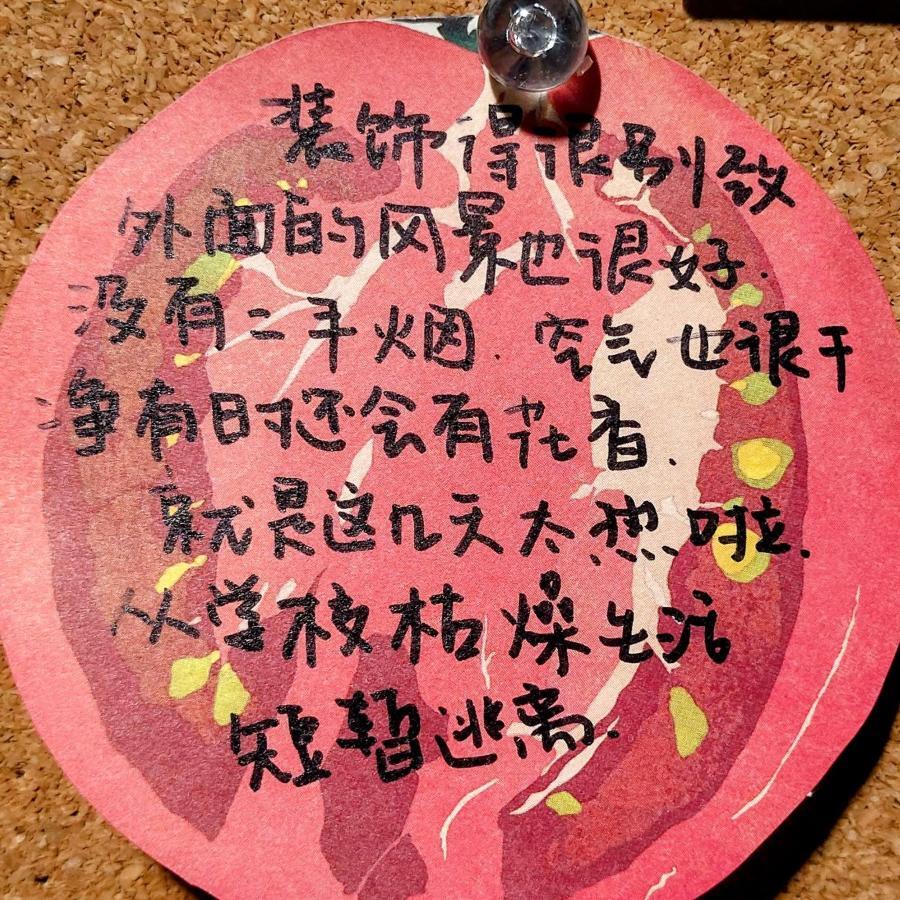 装饰得很别致
外面的风景也很好.
没有二手烟.空气也很干
净有时还会有花香.
就是这几天太热啦.
从学校枯燥生活
短暂逃离.